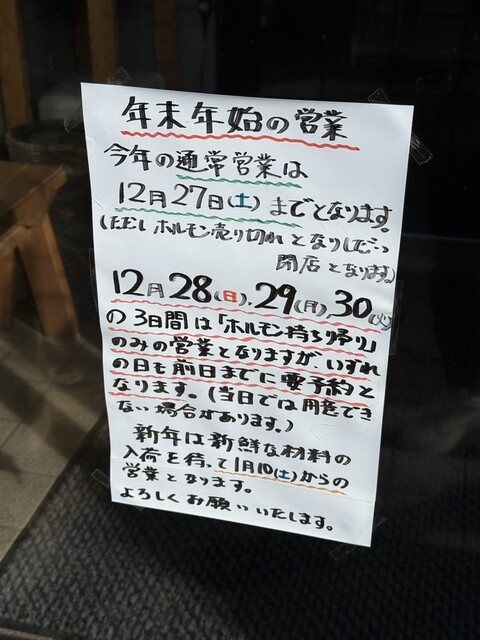 年末年始の営業
今年の通常営業は
12月27日(土)までとなります。
(ただし ホルモン売り切れ となりしだい
閉店となります)
12月28(日).29(月).30(火)
の3日間は「ホルモン持ち帰り」
のみの営業となりますが、いずれ
の日も前日までに要予約と
なります。(当日では用意でき
ない場合があります。)
新年は新鮮な材料の
入荷を待って1月10(土)からの
営業となります。
よろしくお願いいたします。